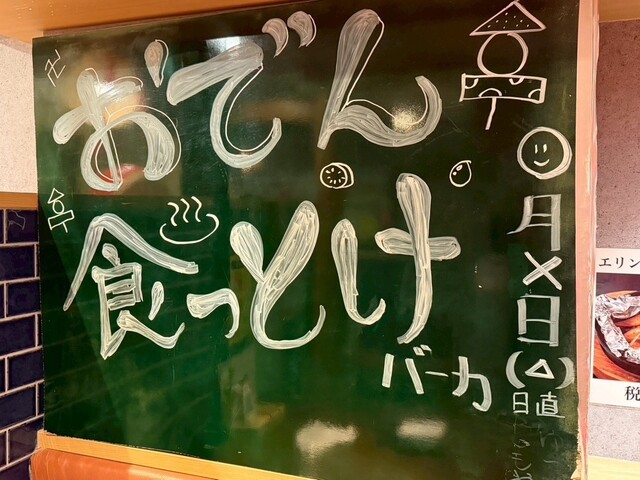 おでん
食っとけ
バーカ
月×日(△)
日直
卍
エリン
税